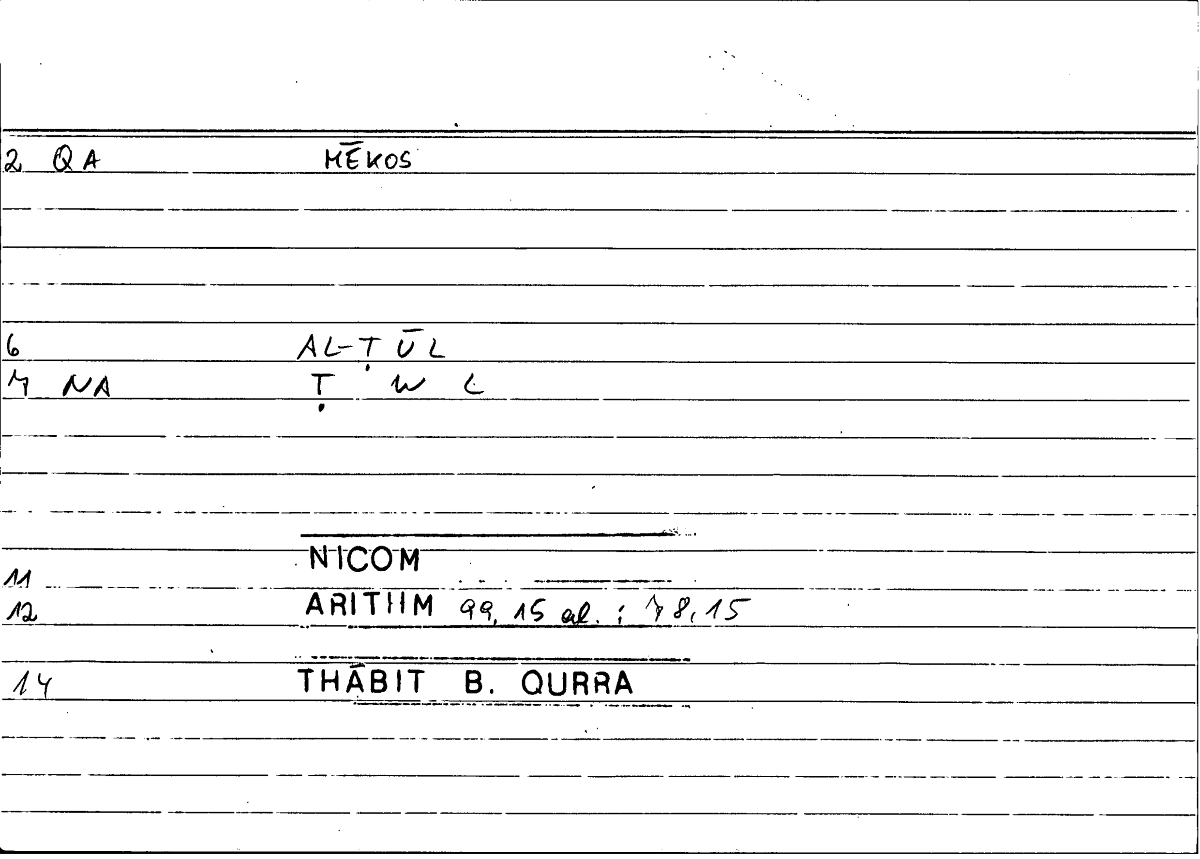 2 QA MĒKOS
6 AL-ṬŪL
7 NA Ṭ W L
11 NICOM
12 ARITHM 99,15 al. ; 78,15
14 THĀBIT B. QURRA